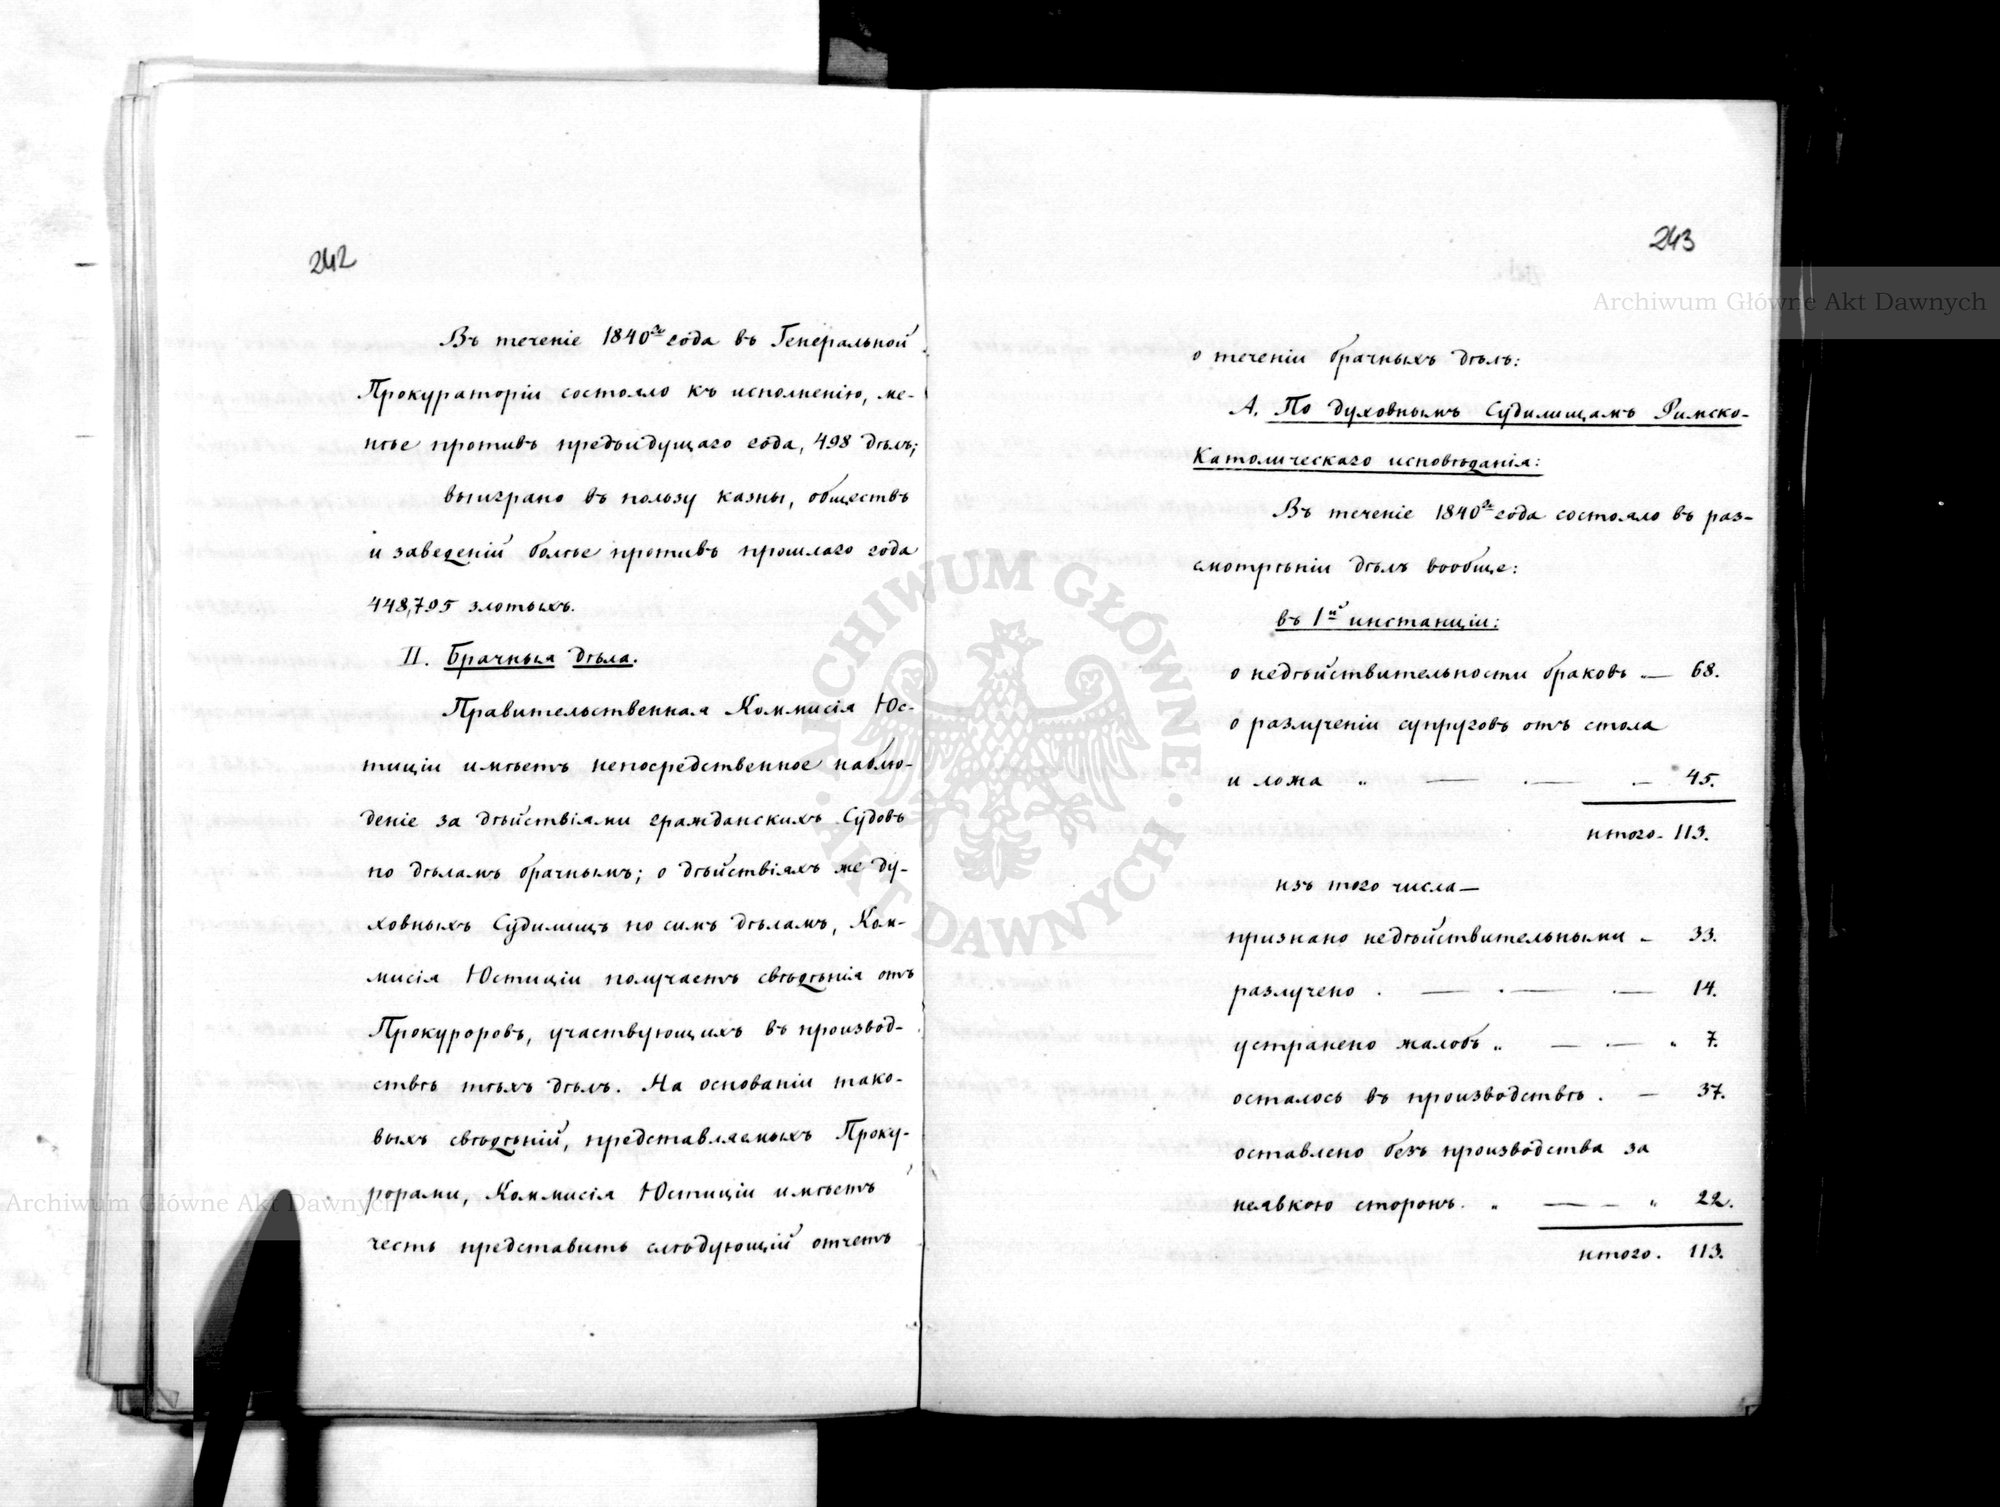 242
Въ теченіе 1840го года въ Генеральной
Прокураторіи состояло къ исполненію, ме-
нѣе противъ предъидущаго года, 498 дѣлъ;
выиграно въ пользу казны, обществъ
и заведеній болѣе противъ прошлаго года
448,795 злотыхъ.
II. Брачныя дѣла.
Правительственная Коммисія Юс-
тиціи имѣетъ непосредственное наблю-
деніе за дѣйствіями гражданскихъ Судовъ
по дѣламъ брачнымъ; о дѣйствіяхъ же ду-
ховныхъ Судилищъ по симъ дѣламъ, Ком-
мисія Юстиціи получаетъ свѣдѣнія отъ
Прокуроровъ, участвующихъ въ производ-
ствѣ тѣхъ дѣлъ. На основаніи тако-
выхъ свѣдѣній, представляемыхъ Проку-
рорами, Коммисія Юстиціи имѣетъ
честь представить слѣдующій отчетъ
243
о теченіи брачныхъ дѣлъ:
А. По духовнымъ Судилищамъ Римско-
Католическаго исповѣданія:
Въ теченіе 1840го года состояло въ раз-
смотрѣніи дѣлъ вообще:
въ 1й инстанціи:
о недѣйствительности браковъ „— 68.
о разлученіи супруговъ отъ стола
и ложа „ — . — — 45.
итого. 113.
изъ того числа —
признано недѣйствительными — 33.
разлучено . — . — . — 14.
устранено жалобъ „ — . — „ 7.
осталось въ производствѣ . — 37.
оставлено безъ производства за
неявкою сторонъ. „ — — „ 22.
итого. 113.
Archiwum Główne Akt Dawnych
Archiwum Główne Akt Dawnych
ARCHIWUM GŁÓWNE
AKT DAWNYCH